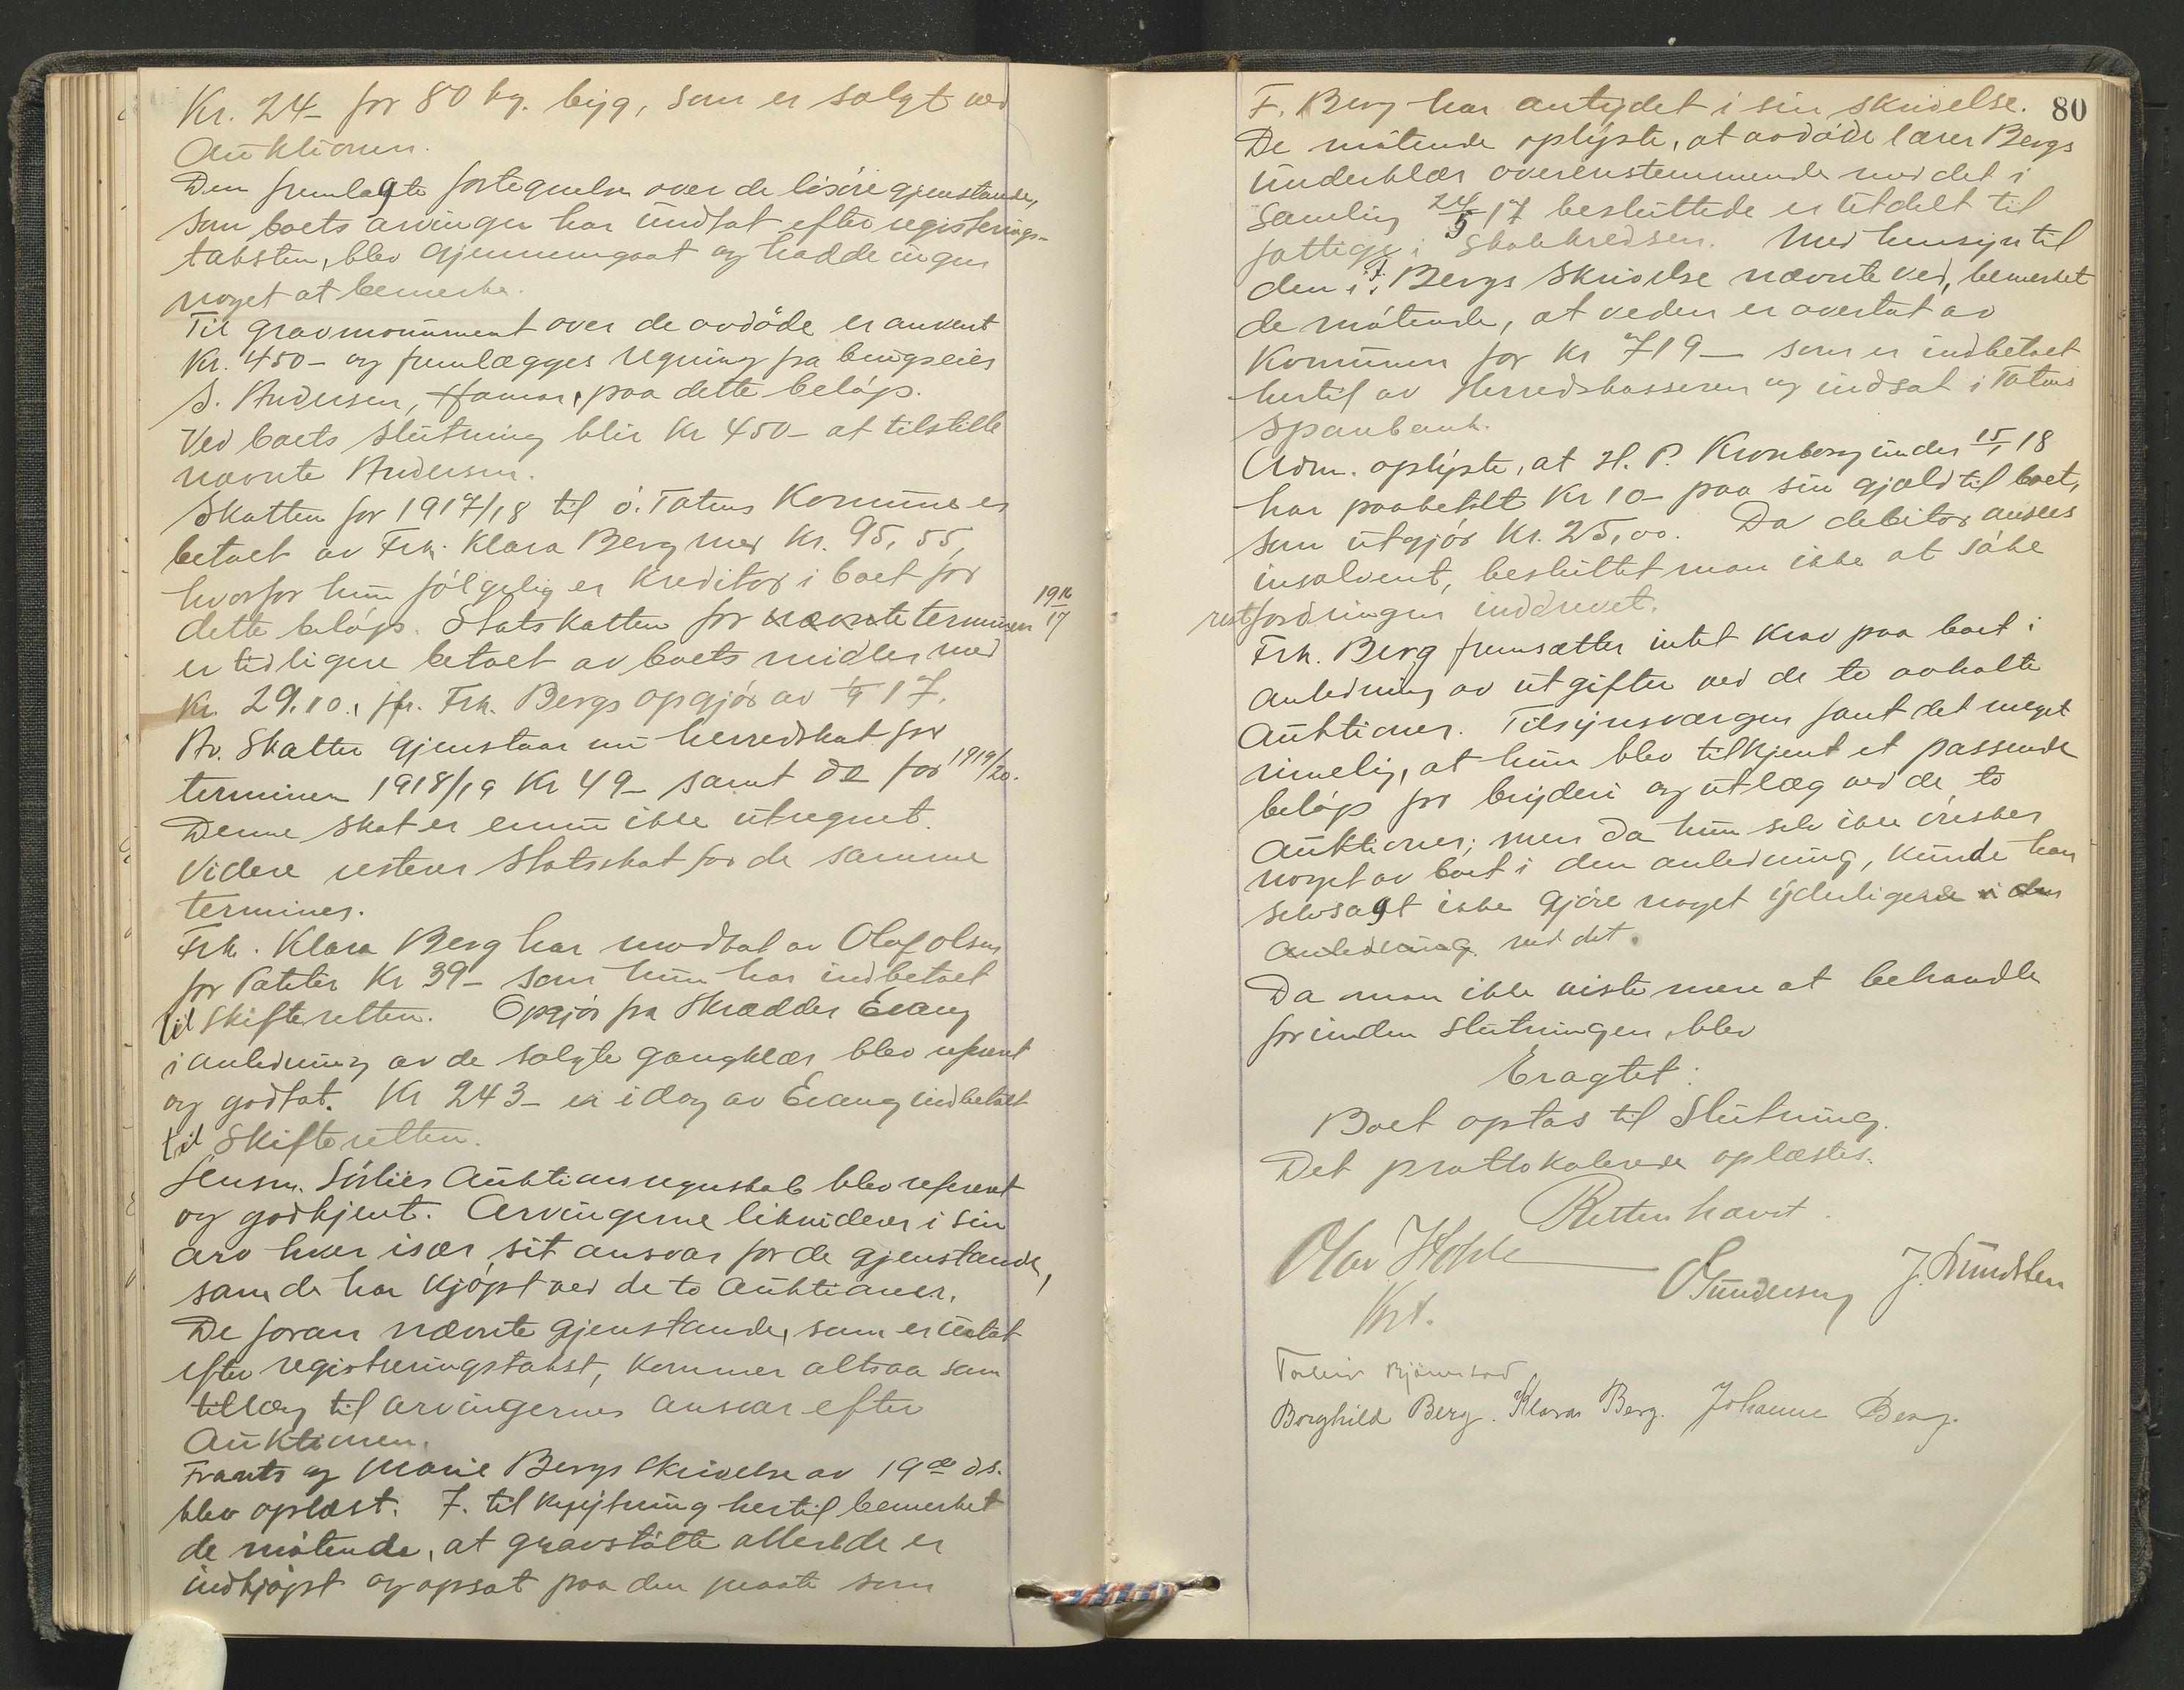 Kr. 24- for 80 kg. byg, som er solgt ved
Auktionen.
Den fremlagte fortegnelse over de lösöregjenstande,
som boets arvinger har undtat efter registrerings-
taksten, blev gjennemgaat og hadde ingen
noget at bemerke.
Til gravmonument over de avdöde er anvent
Kr. 450- og fremlægges regning fra
S. Andersen, Hamar, paa dette belöp.
Ved boets slutning blir Kr 450- at tilstille
nævnte Andersen.
Skatten for 1917/18 til ö. Totens Kommune er
betalt av Frk. Klara Berg med Kr. 95,55,
hvorfor hun fölgelig er kreditor i boet for
dette belöp. Statskatten for nævnte terminen 1916/17
er tidligere betalt av boets midler med
Kr. 29.10., jfr. Frk. Bergs opgjör av 17.
Av skatter gjenstaar nu herredskat for
terminen 1918/19 Kr 49- samt do for 1919/20.
Denne skat er ennu ikke utregnet.
Videre resterer statsskat for de samme
terminer.
Frk. Klara Berg har modtat av Olaf Olsen
for Poteter Kr 39- som hun har indbetalt
til Skifteretten. Opgjör fra Skrædder Evang
i anledning av de solgte gangklær blev referert
og godtat. Kr 243- er idag av Evang indbetalt
til Skifteretten.
Lensm. Sörlies Auktionsregnskab blev referert
og godkjent. Arvingerne likviderer i sin
arv hver især sit ansvar for de gjenstande,
som de har kjöpt ved de to Auktioner.
De foran nævnte gjenstande, som er uttat
efter registreringstakst, kommer altsaa som
tillæg til arvingernes ansvar efter
Auktionen.
Frants og Marie Bergs skrivelse av 19de ds.
blev oplæst. F. til hertil bemerket
de mötende, at gravstötte allerede er
indkjöpt og opsat paa den maate som
80
F. Berg har antydet i sin skrivelse.
De mötende oplyste, at avdöde lærer Bergs
underklær overenstemmende med det i
samling 24/5 17 besluttede er utdelt til
fattige i Skolekredsen. Med hensyn til
den i F. Bergs skrivelse nævnte ved, bemerket
de mötende, at veden er overtat av
Kommunen for Kr 719- som er indbetalt
hertil av Herredskasseren og indsat i Totens
Sparebank.
Adm. oplyste, at H. P. Kronborg under 15/1 18
har paabetalt Kr 10- paa sin gjæld til boet,
som utgjör Kr. 25,00. Da debitor ansees
insolvent, besluttet man ikke at söke
restfordringen inddrevet.
Frk. Berg fremsætter intet krav paa boet i
anledning av utgifter ved de to avholte
Auktioner. Tilsynsværgen fant det meget
rimelig, at hun blev tilkjent et passende
belöp for bryderi og utlæg ved de to
Auktioner; men da hun selv ikke önsker
noget av boet i den anledning, kunde han
selvsagt ikke gjöre noget yderligere i den
anledning ved det.
Da man ikke viste mere at behandle
forinden slutningen, blev
Eragtet:
Boet optas til Slutning.
Det prottokolerede oplæstes.
Retten hævet.
Olav
Kst.
O Gundersen J. Sundsten
Borghild Berg. Klara Berg. Johanne Berg.